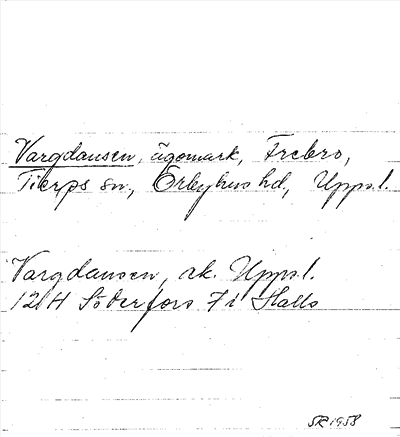 Vargdansen, ägomark, Frebro,
Tierps sn., Örbyhus hd., Uppsl.
Vargdansen, ek. Uppsl.
12 H Söderfors 7 i Halls
SR 1958